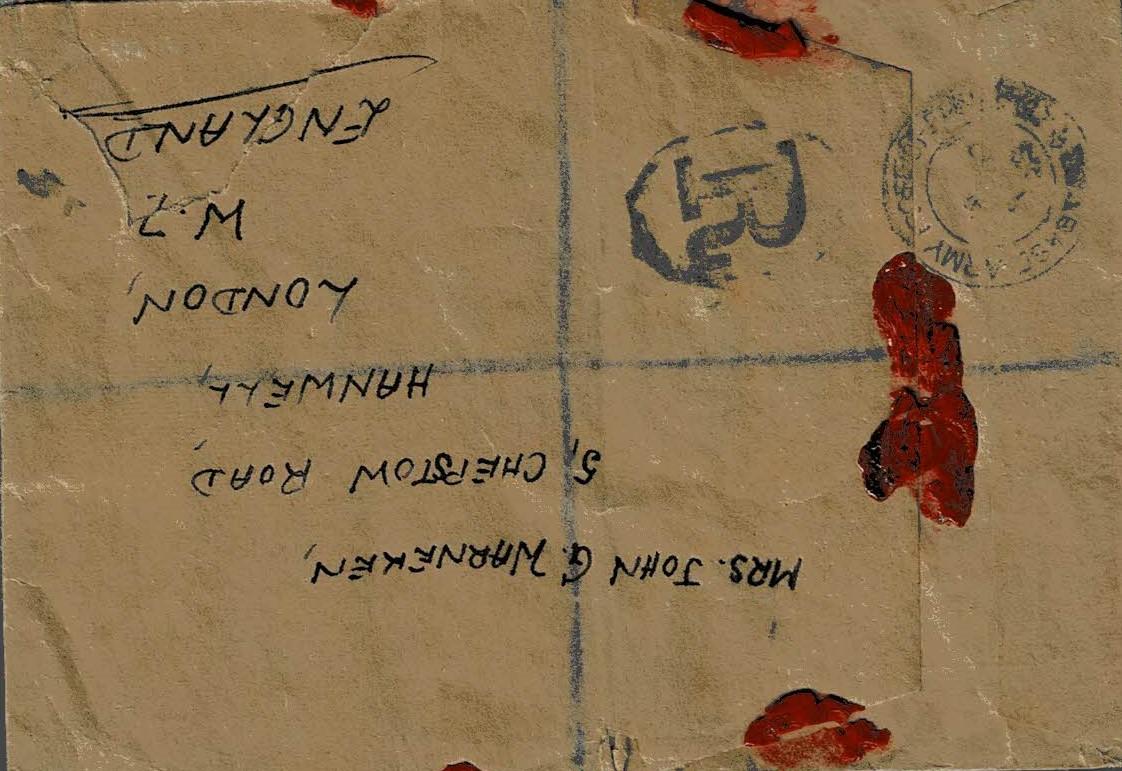 MRS. JOHN G. WARNEKEN,
5, CHEPSTOW ROAD,
HANWELL,
LONDON,
W.7.
ENGLAND
ARMY
BASE